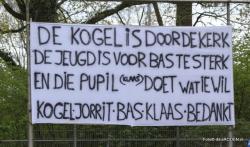 DE KOGEL IS DOOR DE KERK
DE JEUGD IS VOOR BAS TE STERK
EN DIE PUPIL (KLAAS) DOET WAT IE WIL
KOGEL JORRIT · BAS KLAAS · BEDANKT